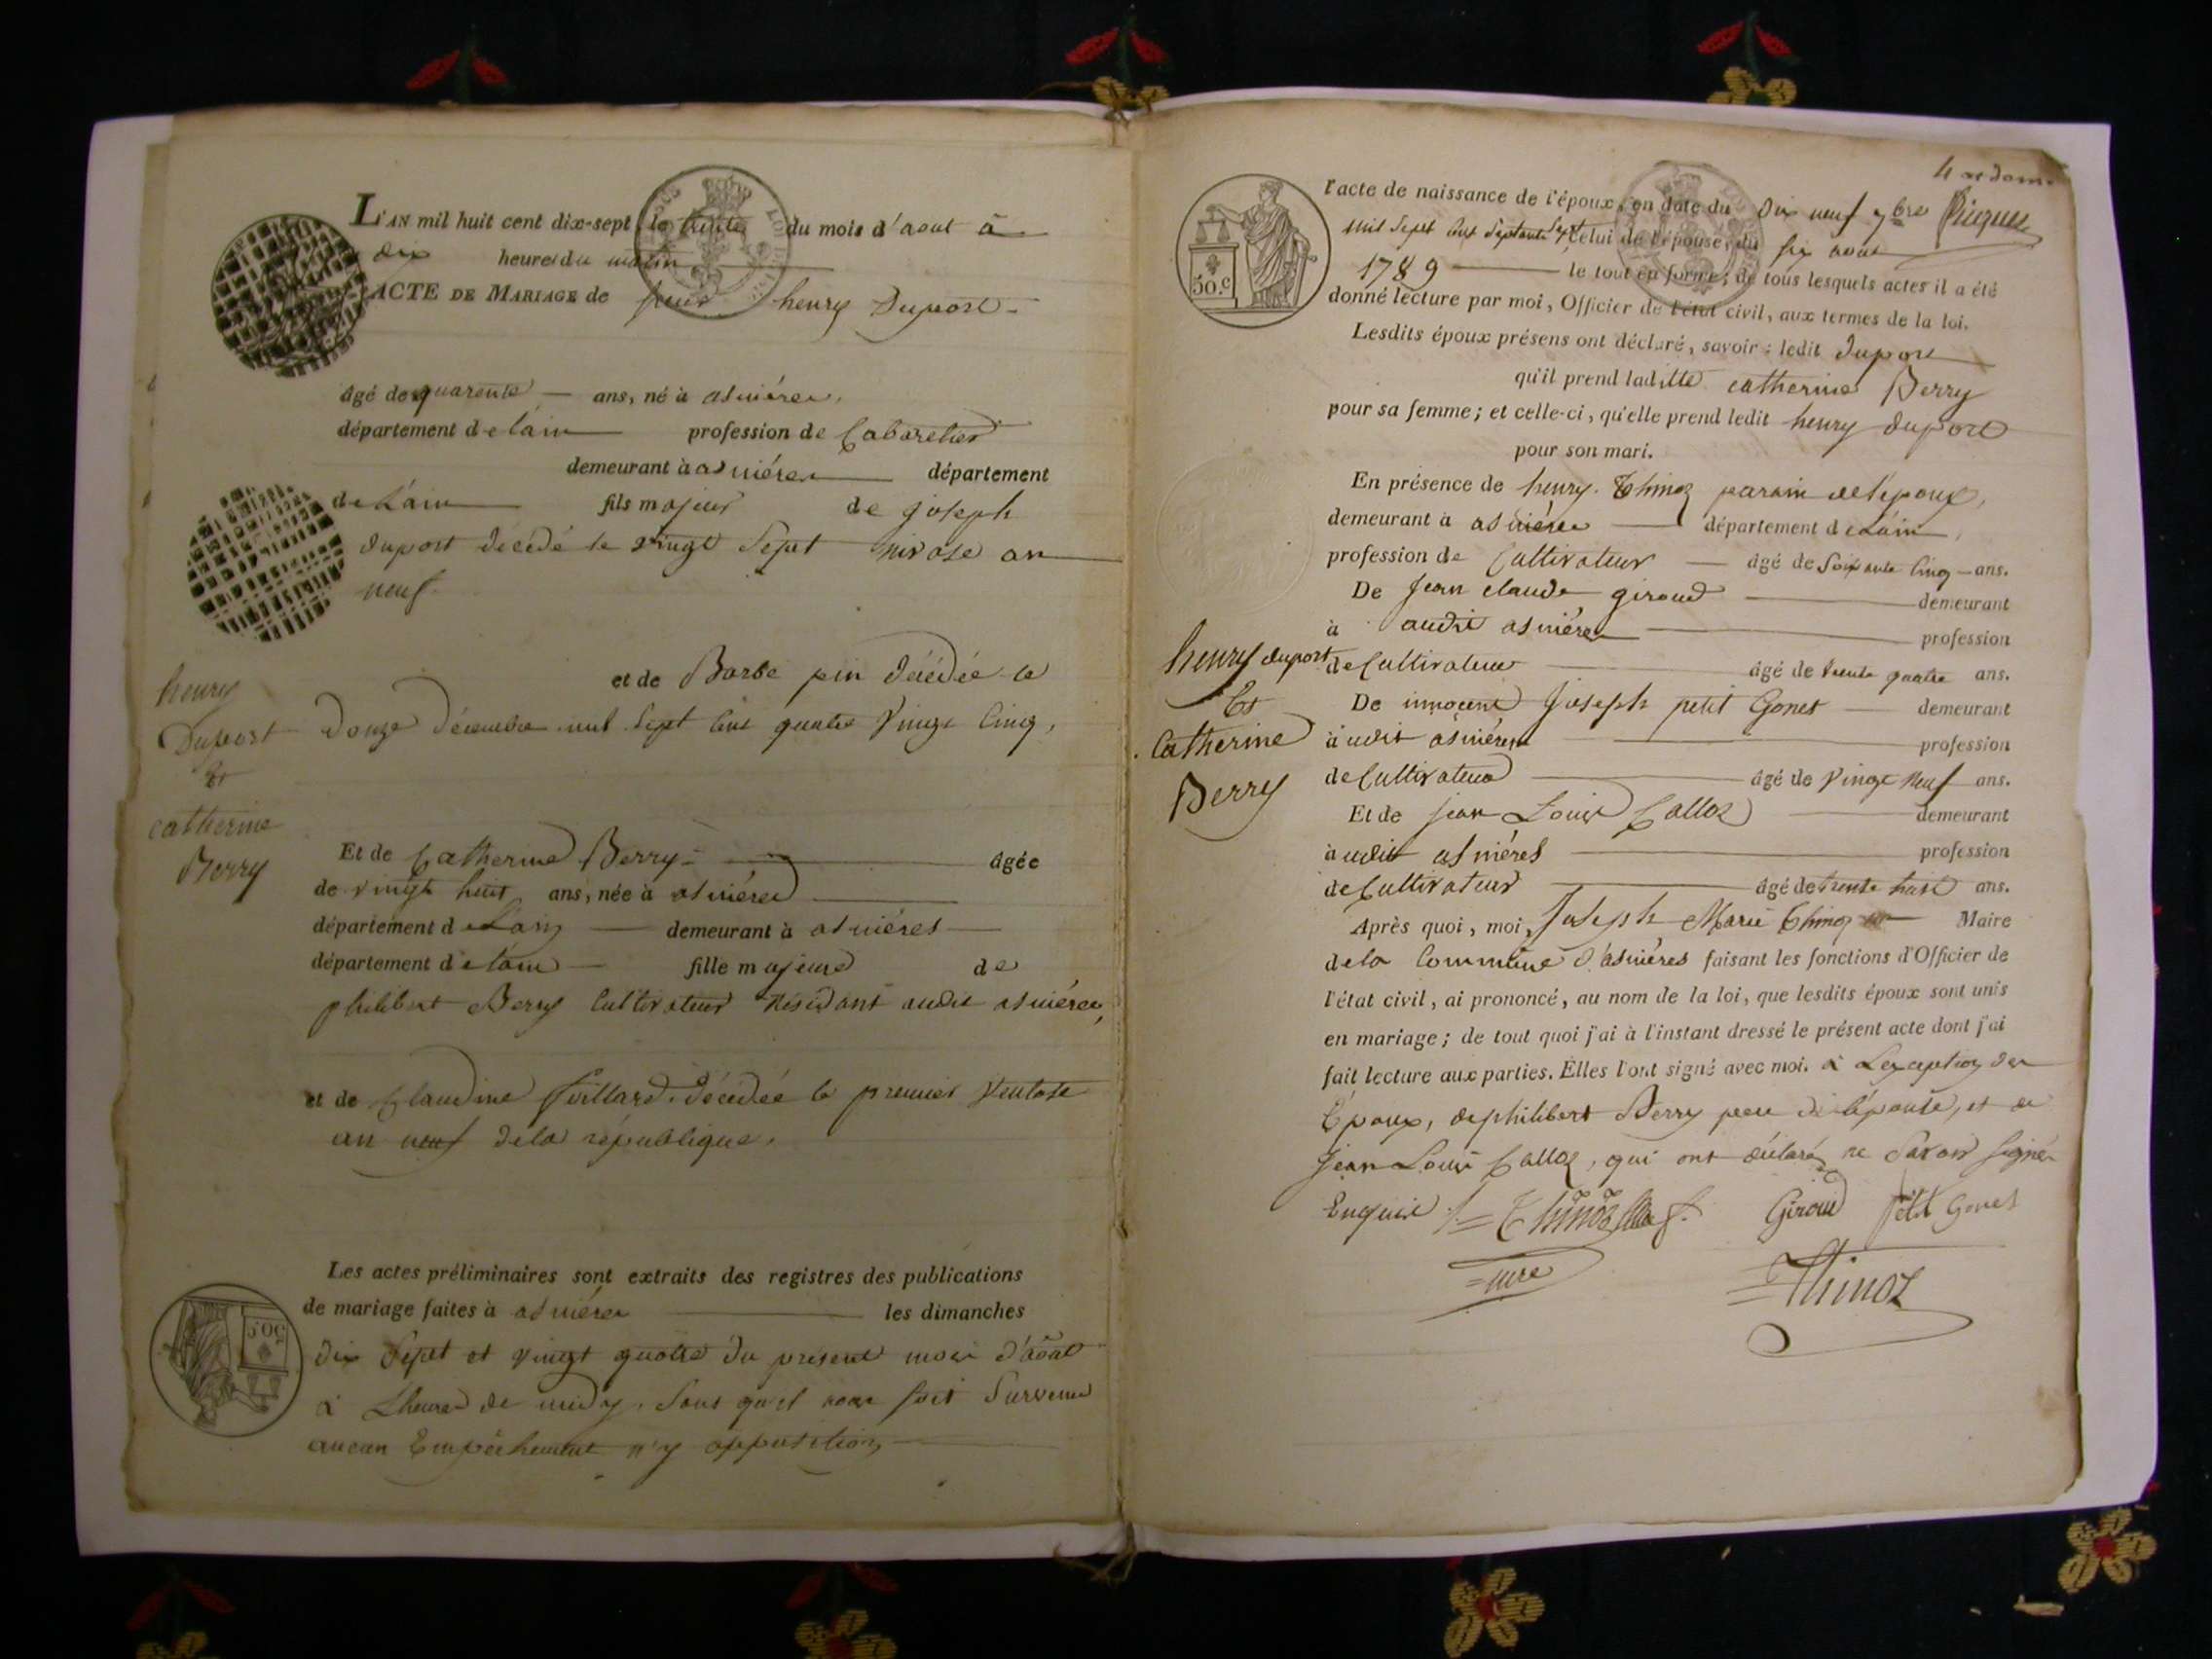 L'AN mil huit cent dix-sept le trente du mois d'aout à
dix heures du matin
ACTE DE MARIAGE de henry Duport
âgé de quarente ans, né à asniéres,
département de lain profession de Cabaretier
demeurant à asniéres département
de Lain fils majeur de joseph
duport décédé le vingt Sept nivose an
neuf.
et de Barbe pin décédée le
douze décembre mil Sept Cent quatre Vingt Cinq,
henry
Duport
Et
catherine
Berry
Et de Catherine Berry âgée
de vingt huit ans, née à asniéres
département de Lain demeurant à asniéres
département de lain fille majeure de
philibert Berry Cultivateur Résidant audit asniéres,
et de Claudine décédée le premier Ventose
an neuf dela république.
Les actes préliminaires sont extraits des registres des publications
de mariage faites à asniéres les dimanches
50.c
dix Sept et vingt quatre du présent mois d'aoat
à Lheure de midy, Sans qu'il nous soit Survenu
aucun Empéchement n'y opposition
l'acte de naissance de l'époux, en date du dix neuf 7bre
mil Sept Cent Septante Sept celui de l'épouse, du six aout
1789 le tout en forme; de tous lesquels actes il a été
50.c
donné lecture par moi, Officier de l'état civil, aux termes de la loi.
Lesdits époux présens ont déclaré, savoir : ledit duport
qu'il prend laditte catherine Berry
pour sa femme; et celle-ci, qu'elle prend ledit henry duport
pour son mari.
En présence de henry Thinoz parain de l'époux,
demeurant à asniéres département de Lain,
profession de Cultivateur âgé de Soixante Cinq ans.
De Jean claude giroud demeurant
à audit asniéres profession
henry duport
Et
Catherine
Berry
de Cultivateur âgé de trente quatre ans.
De innocent Joseph petit Gonet demeurant
à udit asniéres profession
de Cultivateur âgé de Vingt neuf ans.
Et de jean Louis Calloz demeurant
à udit asniéres profession
de Cultivateur âgé de trente huit ans.
Après quoi, moi, Joseph Marie Thinoz Maire
dela Commune d'asniéres faisant les fonctions d'Officier de
l'état civil, ai prononcé, au nom de la loi, que lesdits époux sont unis
en mariage; de tout quoi j'ai à l'instant dressé le présent acte dont j'ai
fait lecture aux parties. Elles l'ont signé avec moi. à Lexception des
Époux, de philibert Berry pere de lépouse, et de
Jean Louis Calloz, qui ont déclaré ne Savoir signer
Enquis Thinoz Giroud petit Gonet
Thinoz